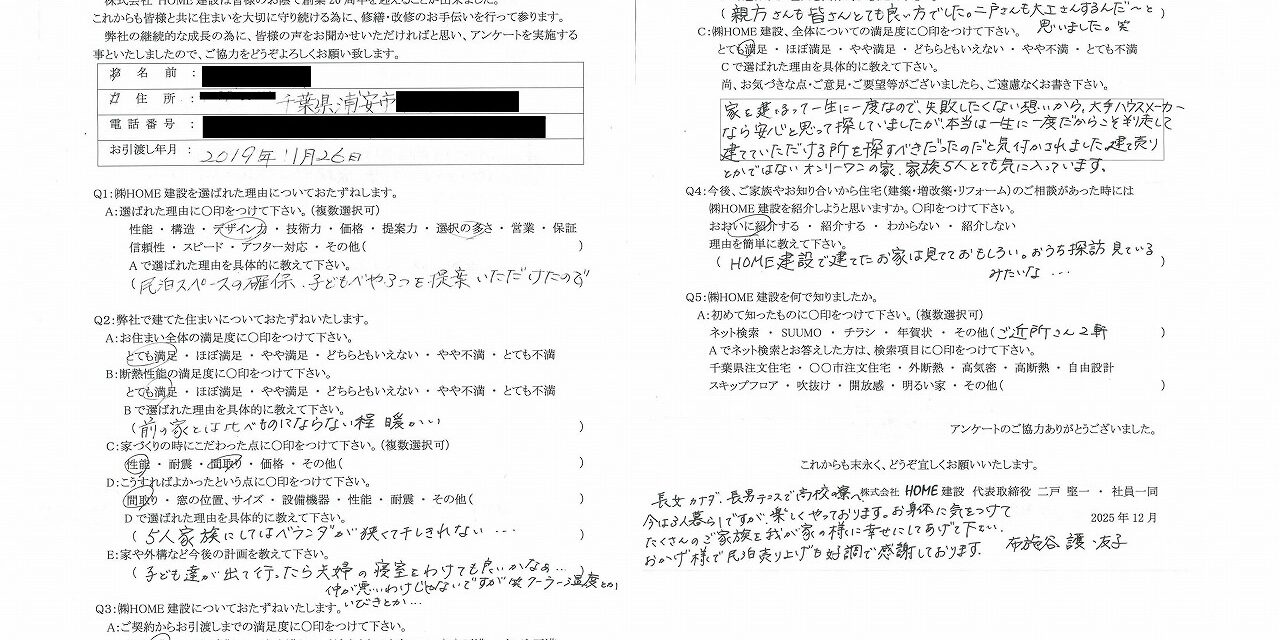 株式会社 HOME建設は皆様のお陰で創業20周年を迎えることが出来ました。
これからも皆様と共に住まいを大切に守り続ける為に、修繕・改修のお手伝いを行って参ります。
弊社の継続的な成長の為に、皆様の声をお聞かせいただければと思い、アンケートを実施する
事といたしましたので、ご協力をどうぞよろしくお願い致します。
お 名 前 :
ご 住 所 : 千葉県浦安市
電話番号 :
お引渡し年月 : 2019年11月26日
Q1:㈱HOME建設を選ばれた理由についておたずねします。
A:選ばれた理由に〇印をつけて下さい。(複数選択可)
性能 ・ 構造 ・ デザイン力 ・ 技術力 ・ 価格 ・ 提案力 ・ 選択の多さ ・ 営業 ・ 保証
信頼性 ・ スピード ・ アフター対応 ・ その他( )
Aで選ばれた理由を具体的に教えて下さい。
(民泊スペースの確保、子どもべやふつを提案いただけたので
Q2:弊社で建てた住まいについておたずねいたします。
A:お住まい全体の満足度に〇印をつけて下さい。
とても満足 ・ ほぼ満足 ・ やや満足 ・ どちらともいえない ・ やや不満 ・ とても不満
B:断熱性能の満足度に〇印をつけて下さい。
とても満足 ・ ほぼ満足 ・ やや満足 ・ どちらともいえない ・ やや不満 ・ とても不満
Bで選ばれた理由を具体的に教えて下さい。
(前の家とは比べものにならない程 暖かい )
C:家づくりの時にこだわった点に〇印をつけて下さい。(複数選択可)
性能 ・ 耐震 ・ 間取り ・ 価格 ・ その他( )
D:こうすればよかったという点に〇印をつけて下さい。
間取り ・ 窓の位置、サイズ ・ 設備機器 ・ 性能 ・ 耐震 ・ その他( )
Dで選ばれた理由を具体的に教えて下さい。
(5人家族にしてはベランダが狭くて干しきれない… )
E:家や外構など今後の計画を教えて下さい。
(子ども達が出て行ったら夫婦の寝室をわけても良いかなぁ…
仲が悪いわけじゃないですが笑 クーラーの温度とか
いびきとか…
Q3:㈱HOME建設についておたずねいたします。
A:ご契約からお引渡しまでの満足度に〇印をつけて下さい。
(親方さんも皆さんとても良い方でした。二戸さんも大工さんするんだ〜と
思いました。笑
C:㈱HOME建設、全体についての満足度に〇印をつけて下さい。
とても満足 ・ ほぼ満足 ・ やや満足 ・ どちらともいえない ・ やや不満 ・ とても不満
Cで選ばれた理由を具体的に教えて下さい。
尚、お気づきな点・ご意見・ご要望等がございましたら、ご遠慮なくお書き下さい。
家を建るって一生に一度なので、失敗したくない想いから、大手ハウスメーカー
なら安心と思って探していましたが、本当は一生に一度だからこそ
建てていただける所を探すべきだったのだと気付かされました。建て売り
とかではないオンリーワンの家、家族5人とても気に入っています。
Q4:今後、ご家族やお知り合いから住宅(建築・増改築・リフォーム)のご相談があった時には
㈱HOME建設を紹介しようと思いますか。〇印をつけて下さい。
おおいに紹介する ・ 紹介する ・ わからない ・ 紹介しない
理由を簡単に教えて下さい。
(HOME建設で建てたお家は見てておもしろい。おうち探訪見ている )
みたいな…
Q5:㈱HOME建設を何で知りましたか。
A:初めて知ったものに〇印をつけて下さい。(複数選択可)
ネット検索 ・ SUUMO ・ チラシ ・ 年賀状 ・ その他(ご近所さん2軒 )
Aでネット検索とお答えした方は、検索項目に〇印をつけて下さい。
千葉県注文住宅 ・ 〇〇市注文住宅 ・ 外断熱 ・ 高気密 ・ 高断熱 ・ 自由設計
スキップフロア ・ 吹抜け ・ 開放感 ・ 明るい家 ・ その他( )
アンケートのご協力ありがとうございました。
これからも末永く、どうぞ宜しくお願いいたします。
株式会社 HOME建設 代表取締役 二戸 堅一 ・ 社員一同
2025年12月
長女カナダ、長男テニスで高校の寮へ
今は3人暮らしですが、楽しくやっております。お身体に気をつけて
たくさんのご家族を我が家の様に幸せにしてあげて下さい。
おかげ様で民泊売り上げも好調で感謝しております。 布施谷 護・友子